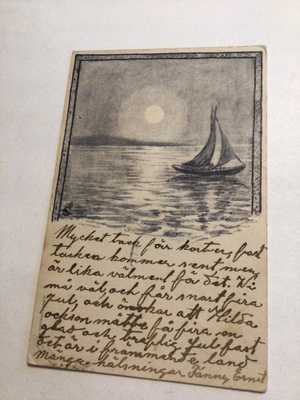 Mycket tack för kortet, fast
tacken kommer sent, men
är lika välment för det. Vi
må väl, och får snart fira
Jul, och önskar att Hilda
också måtte få fira en
glad och treflig Jul fast
det är i främmande land
Många hälsningar Fanny Ernst